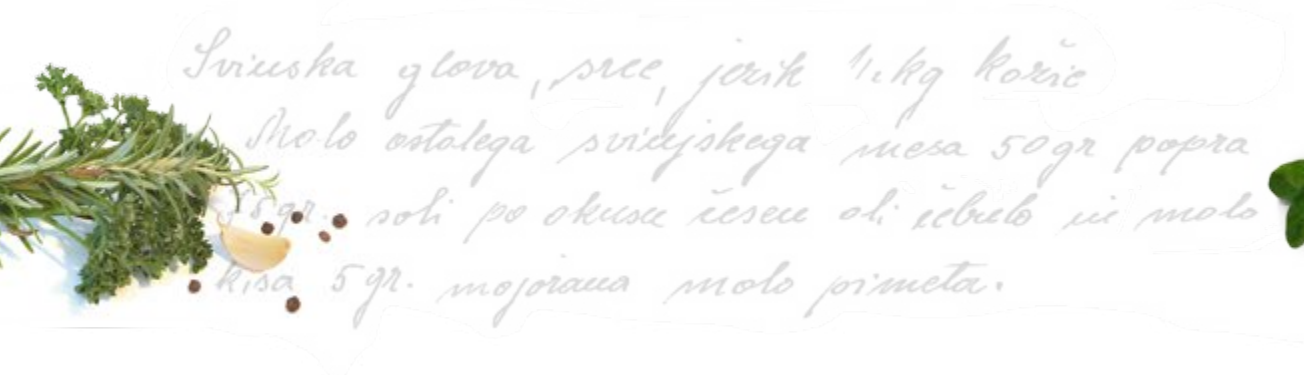 Svinska glava, srce, jezik 1/2 kg kožic
Malo ostalega svinjskega mesa 50 gr popra
gr. soli po okusu česen ali čebulo in malo
kisa 5 gr. majorana malo pimeta.